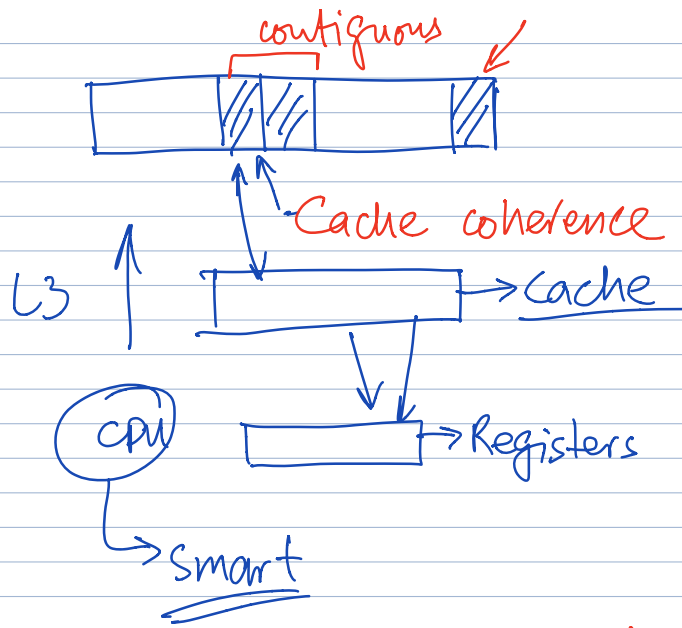 contiguous
Cache coherence
L3
Cache
CPU
Registers
Smart